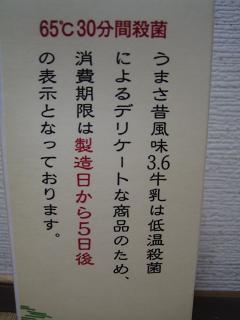 65℃30分間殺菌
うまさ昔風味
3.6牛乳は低温殺菌
によるデリケートな商品のため、
消費期限は製造日から5日後
の表示となっております。